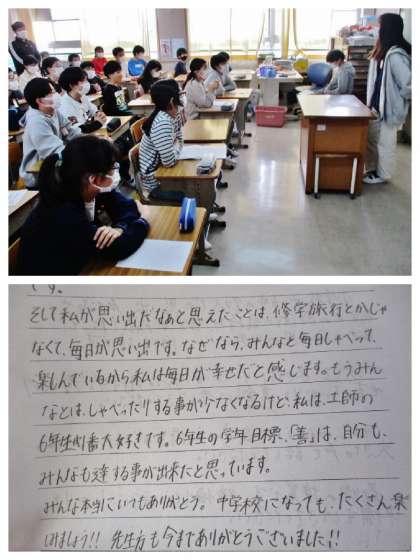 です。
そして私が思い出だなぁと思えたことは、修学旅行とかじゃ
なくて、毎日が思い出です。なぜなら、みんなと毎日しゃべって、
楽しんでいるから私は毎日が幸せだと感じます。もうみん
なとは、しゃべったりする事が少なくなるけど、私は、土師の
6年生が1番大好きです。6年生の学年目標、「善」は、自分も、
みんなも達する事が出来たと思っています。
みんな本当にいつもありがとう。中学校になっても、たくさん楽
しみましょう!!先生方も今までありがとうございました!!